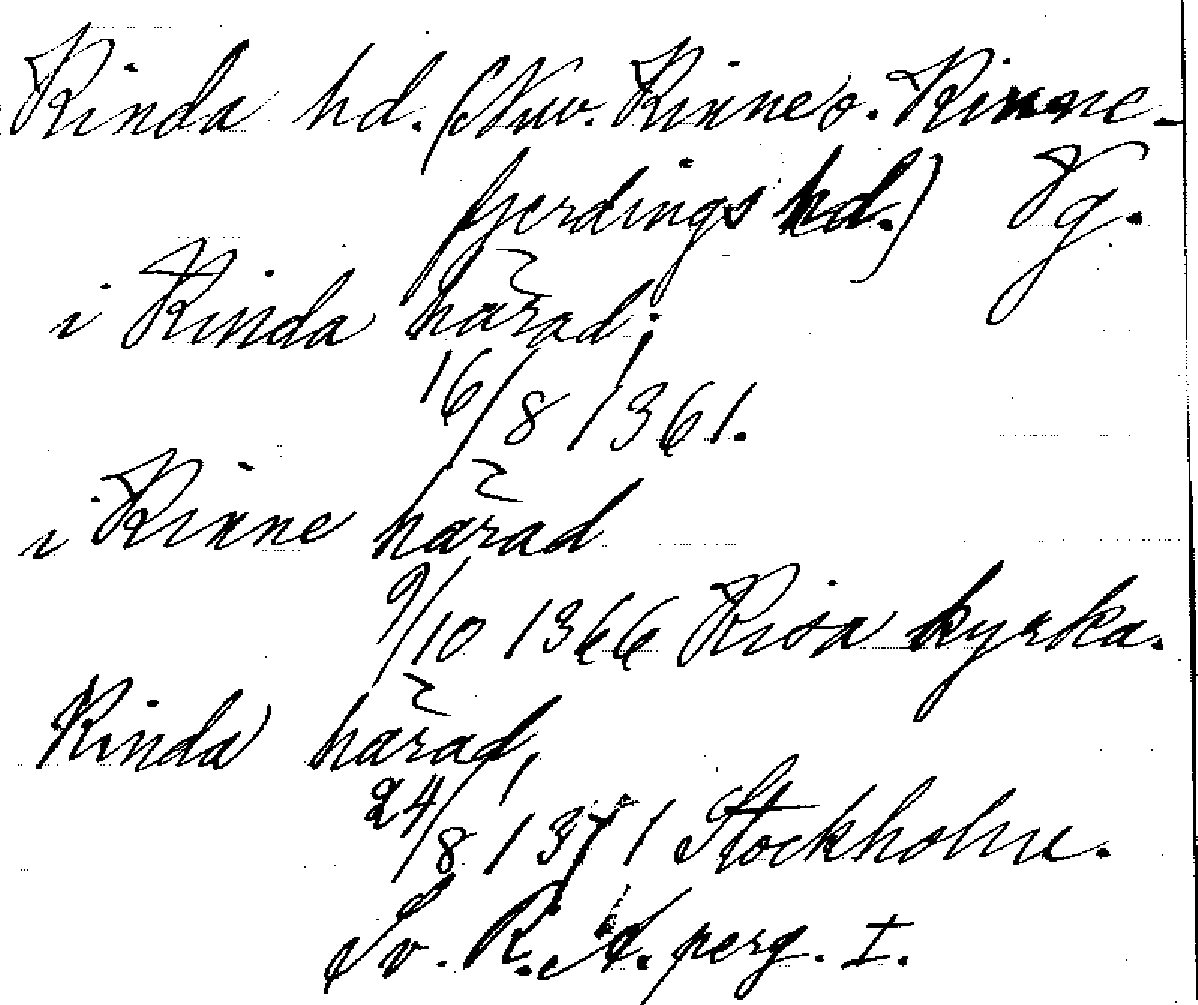 Kinda hd. (Nuv. Kinne o. Kinne-
fjerdings hd.) Vg.
i Kinda härad;
16/8 1361.
i Kinne härad
9/10 1366 Risa kyrka.
Kinda härad,
24/8 1371 Stockholm.
Sv. R. A. perg. I.